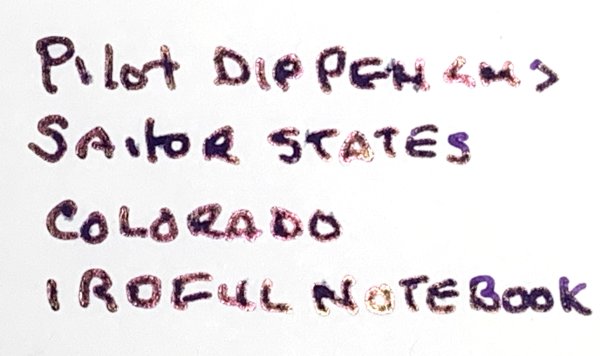 Pilot DIP PEN <M>
SAILOR STATES
COLORADO
IROFUL NOTEBOOK